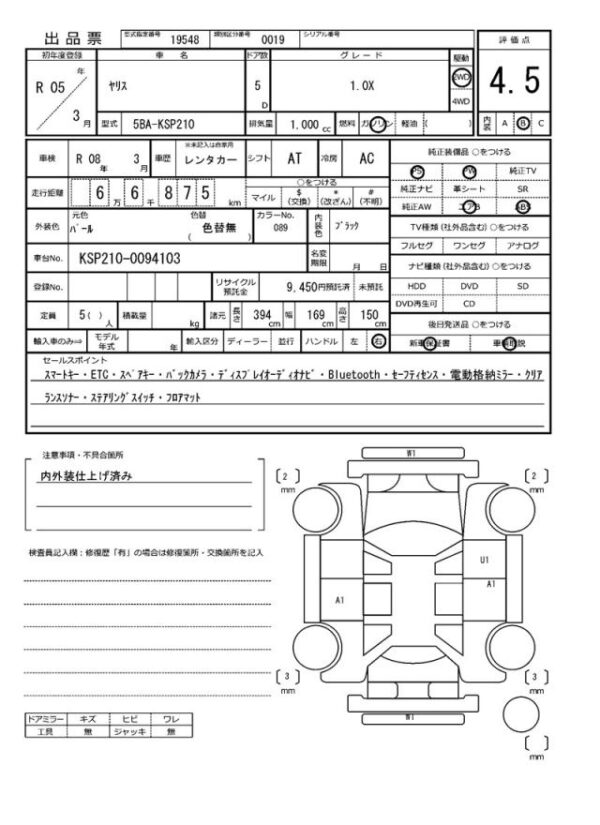 出品票 型式指定番号 19548 類別区分番号 0019 シリアル番号
評価点
初年度登録 車名 ドア数 グレード 駆動
R 05 年 ヤリス 5 D 1.0X 2WD 4.5
4WD
3 月 型式 5BA-KSP210 排気量 1,000 cc 燃料 ガソリン 軽油 ( ) 内装 A B C
車検 R 08 年 3 月 車歴 ※未記入は自家用 レンタカー シフト AT 冷房 AC
純正装備品 ○をつける
PS PW 純正TV
走行距離 6 万 6 千 8 7 5 km ○をつける
マイル $ (交換) * (改ざん) # (不明)
純正ナビ 革シート SR
純正AW エアB ABS
外装色 元色 パール 色替 ( 色替無 ) カラーNo. 089 内装色 ブラック
TV種類 (社外品含む) ○をつける
フルセグ ワンセグ アナログ
車台No. KSP210-0094103 名変期限 月 日
ナビ種類 (社外品含む) ○をつける
登録No. リサイクル預託金 9,450円預託済 未預託
HDD DVD SD
DVD再生可 CD
定員 5 ( ) 人 積載量 kg 諸元 長さ 394 cm 幅 169 cm 高さ 150 cm
後日発送品 ○をつける
輸入車のみ⇒ モデル年式 年 輸入区分 ディーラー 並行 ハンドル 左 右
新車保証書 車輌取説
セールスポイント
スマートキー・ETC・スペアキー・バックカメラ・ディスプレイオーディオナビ・Bluetooth・セーフティセンス・電動格納ミラー・クリア
ランスソナー・ステアリングスイッチ・フロアマット
注意事項・不具合箇所
内外装仕上げ済み
検査員記入欄：修復歴「有」の場合は修復箇所・交換箇所を記入
W1
2 mm
2 mm
U1
A1
A1
3 mm
3 mm
W1
( ) mm
ドアミラー キズ ヒビ ワレ
工具 無 ジャッキ 無